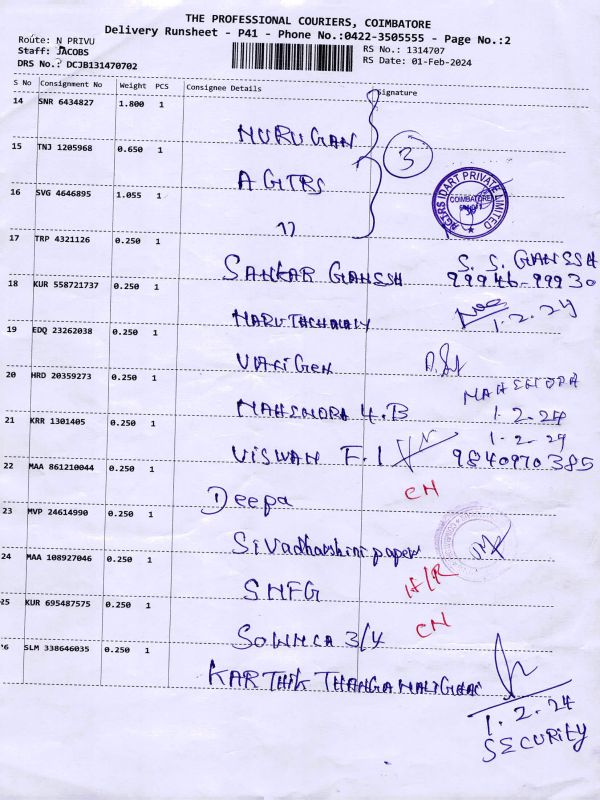 THE PROFESSIONAL COURIERS, COIMBATORE
Delivery Runsheet - P41 - Phone No.:0422-3505555 - Page No.:2
Route: N PRIVU
Staff: JACOBS
DRS No.: DCJB131470702
RS No.: 1314707
RS Date: 01-Feb-2024
S No Consignment No Weight PCS Consignee Details Signature
14 SNR 6434827 1.800 1
MURUGAN
15 TNJ 1205968 0.650 1
AGTRS
3
AGTRS IDART PRIVATE LIMITED
COIMBATORE
16 SVG 4646895 1.055 1
"
17 TRP 4321126 0.250 1
SANKAR GANESH
S. S. GANESH
99946-99930
18 KUR 558721737 0.250 1
1.2.24
19 EDQ 23262038 0.250 1
20 HRD 20359273 0.250 1
MAHENDRA 4.B
MAHENDRA
1.2.24
21 KRR 1301405 0.250 1
VISWAN F.1
1.2.24
9840970385
22 MAA 861210044 0.250 1
Deepa
CN
23 MVP 24614990 0.250 1
Sivadharshini papers
24 MAA 108927046 0.250 1
SNFG
H/R
25 KUR 695487575 0.250 1
3/4
CN
26 SLM 338646035 0.250 1
KARTHIK THANGAMALIGHAI
1.2.24
SECURITY